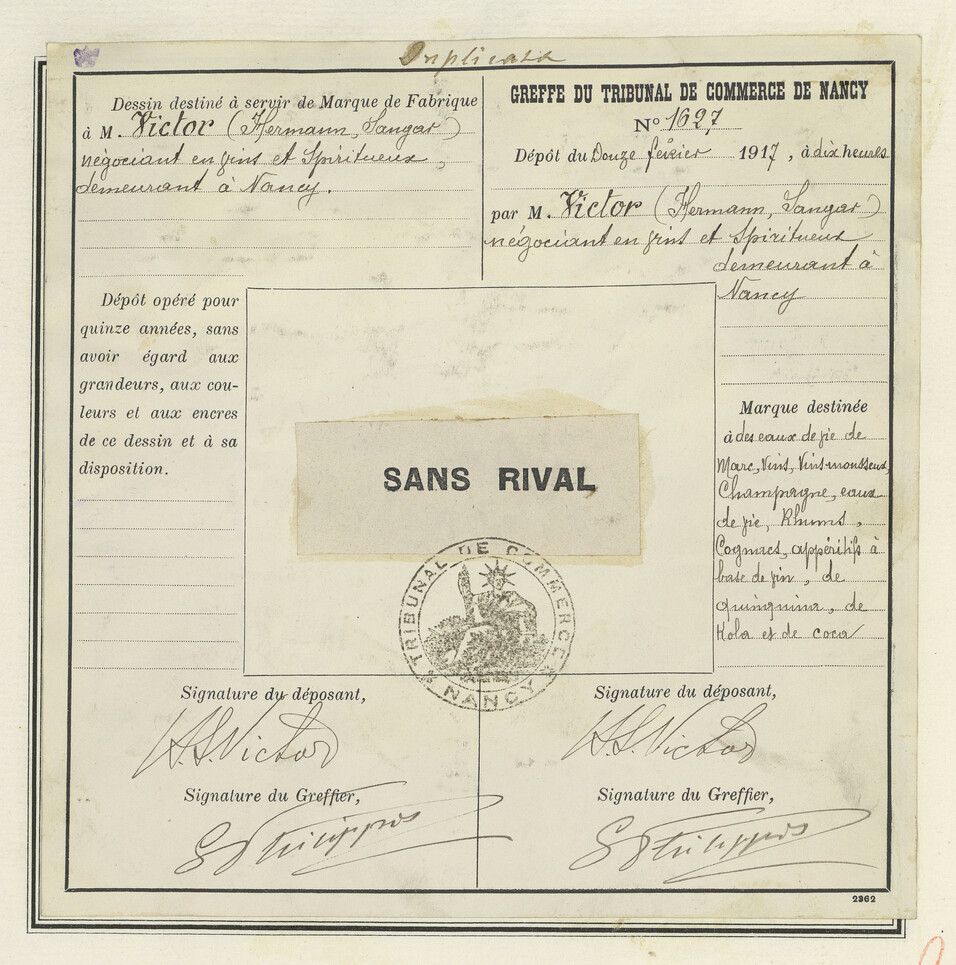 Duplicata
Dessin destiné à servir de Marque de Fabrique
à M. Victor (Hermann, Sangar)
négociant en vins et Spiritueux,
demeurant à Nancy.
GREFFE DU TRIBUNAL DE COMMERCE DE NANCY
N° 1627
Dépôt du Douze février 1917, à dix heures
par M. Victor (Hermann, Sangar)
négociant en vins et Spiritueux
demeurant à
Nancy
Dépôt opéré pour
quinze années, sans
avoir égard aux
grandeurs, aux cou-
leurs et aux encres
de ce dessin et à sa
disposition.
SANS RIVAL
TRIBUNAL DE COMMERCE
NANCY
Marque destinée
à des eaux de vie de
Marc, Vins, Vins mousseux,
Champagne, eaux
de vie, Rhums,
Cognacs, appéritifs à
base de vin, de
quinquina, de
Kola et de coca
Signature du déposant,
H.S. Victor
Signature du Greffier,
Signature du déposant,
H.S. Victor
Signature du Greffier,
2362